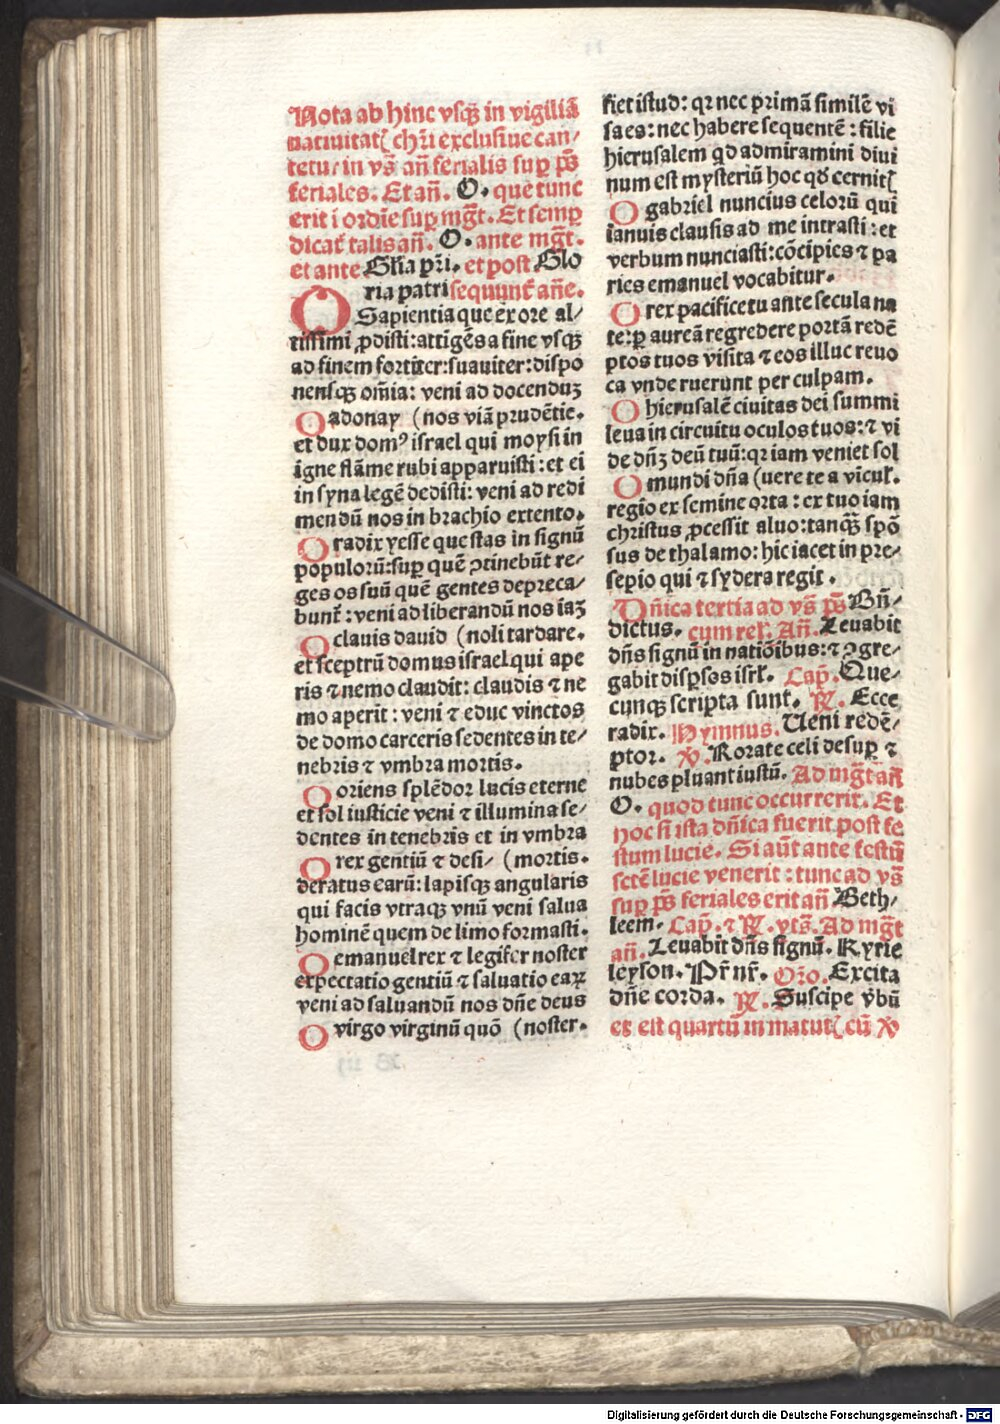 Nota ab hinc vsqꝫ in vigiliā
natiuitatꝭ chr̄i exclusiue can⸗
tetur in vs̄ an̄ ferialis suꝑ ps̄
feriales. Et an̄. O. que tunc
erit i ordīe suꝑ mgt̄. Et semꝑ
dicat᷑ talis an̄. O. ante mgt̄.
et ante Glīa pr̄i. et post Glo
ria patri sequunt᷑ an̄e.
O Sapientia que ex ore al⸗
tissimi ꝓdisti: attigēs a fine vsqꝫ
ad finem fortiter: suauiter: dispo
nensqꝫ om̄ia: veni ad docenduꝫ
O adonay (nos viā prudētie.
et dux domꝰ israel qui moysi in
igne flāme rubi apparuisti: et ei
in syna legē dedisti: veni ad redi
mendū nos in brachio extento.
O radix yesse que stas in signū
populorū: suꝑ quē ꝯtinebūt re⸗
ges os suū quē gentes depreca⸗
bunt᷑: veni ad liberandū nos iaꝫ
O clauis dauid (noli tardare.
et sceptrū domus israel qui ape
ris ⁊ nemo claudit: claudis ⁊ ne
mo aperit: veni ⁊ educ vinctos
de domo carceris sedentes in te⸗
nebris ⁊ vmbra mortis.
O oriens splēdor lucis eterne
et sol iusticie veni ⁊ illumina se⸗
dentes in tenebris et in vmbra
O rex gentiū ⁊ desi⸗ (mortis.
deratus earū: lapisqꝫ angularis
qui facis vtraqꝫ vnū veni salua
hominē quem de limo formasti.
O emanuel rex ⁊ legifer noster
expectatio gentiū ⁊ saluatio eaꝝ
veni ad saluandū nos dn̄e deus
O virgo virginū quō (noster.
fiet istud: qꝛ nec primā similē vi
sa es: nec habere sequentē: filie
hierusalem qd admiramini diui
num est mysteriū hoc qd̄ cernitꝭ
O gabriel nuncius celorū qui
ianuis clausis ad me intrasti: et
verbum nunciasti: cōcipies ⁊ pa
ries emanuel vocabitur.
O rex pacifice tu ante secula na
te: ꝑ aureā regredere portā redē
ptos tuos visita ⁊ eos illuc reuo
ca vnde ruerunt per culpam.
O hierusalē ciuitas dei summi
leua in circuitu oculos tuos: ⁊ vi
de dn̄ꝫ deū tuū: qꝛ iam veniet sol
O mundi dn̄a (uere te a vīcul᷑.
regio ex semine orta: ex tuo iam
christus ꝓcessit aluo: tanqꝫ̄ spō
sus de thalamo: hic iacet in pre⸗
sepio qui ⁊ sydera regit.
Dn̄ica tertia ad vs̄ ps̄ Bn̄⸗
dictus. cum rel᷑. An̄. Leuabit
dn̄s signū in natiōibus: ⁊ ꝯgre⸗
gabit disꝑsos isrl᷑. Cap̄. Que⸗
cunqꝫ scripta sunt. ℟. Ecce
radix. Hymnus. Ueni redē⸗
ptor. ℣. Rorate celi desuꝑ ⁊
nubes pluant iustū. Ad mgt̄ an̄
O. quod tunc occurrerit. Et
hoc si ista dn̄ica fuerit post fe
stum lucie. Si aūt ante festū
sctē lucie venerit: tunc ad vs̄
suꝑ ps̄ feriales erit an̄ Beth⸗
leem. Cap̄. ⁊ ℟. vts̄. Ad mgt̄
an̄. Leuabit dn̄s signū. Kyrie
leyson. Pr̄ nr̄. Or̄o. Excita
dn̄e corda. ℟. Suscipe v̄bū
ex est quartū in matutꝭ cū ℣
Digitalisierung gefördert durch die Deutsche Forschungsgemeinschaft - DFG